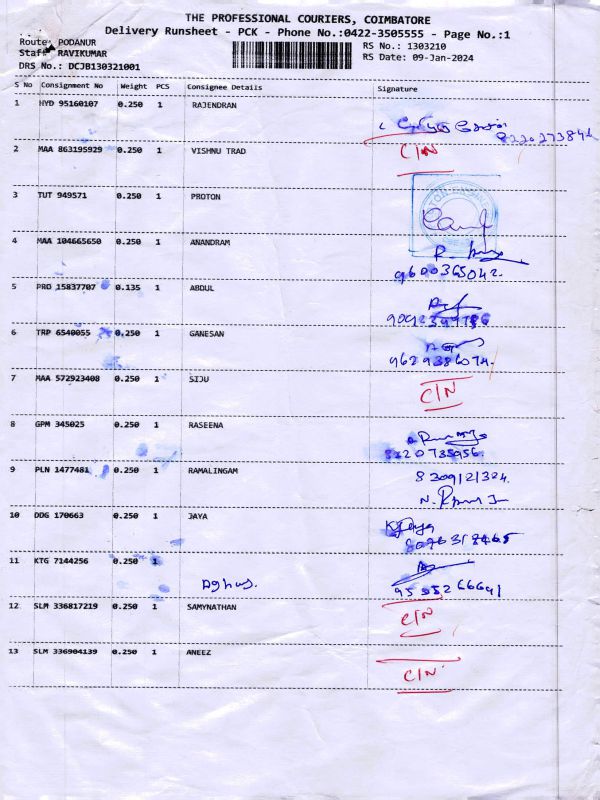 THE PROFESSIONAL COURIERS, COIMBATORE
Delivery Runsheet - PCK - Phone No.:0422-3505555 - Page No.:1
Route: PODANUR
RS No.: 1303210
Staff RAVIKUMAR
RS Date: 09-Jan-2024
DRS No.: DCJB130321001
S No Consignment No Weight PCS Consignee Details Signature
1 HYD 95160107 0.250 1 RAJENDRAN
2 MAA 863195929 0.250 1 VISHNU TRAD C/N
3 TUT 949571 0.250 1 PROTON
4 MAA 104665650 0.250 1 ANANDRAM
9600365042.
5 PRO 15837707 0.135 1 ABDUL
6 TRP 6540055 0.250 1 GANESAN
9629386074.
7 MAA 572923408 0.250 1 SIJU C/N
8 GPM 345025 0.250 1 RASEENA
9 PLN 1477481 0.250 1 RAMALINGAM
10 DDG 170663 0.250 1 JAYA
11 KTG 7144256 0.250 1
12 SLM 336817219 0.250 1 SAMYNATHAN C/N
13 SLM 336904139 0.250 1 ANEEZ C/N